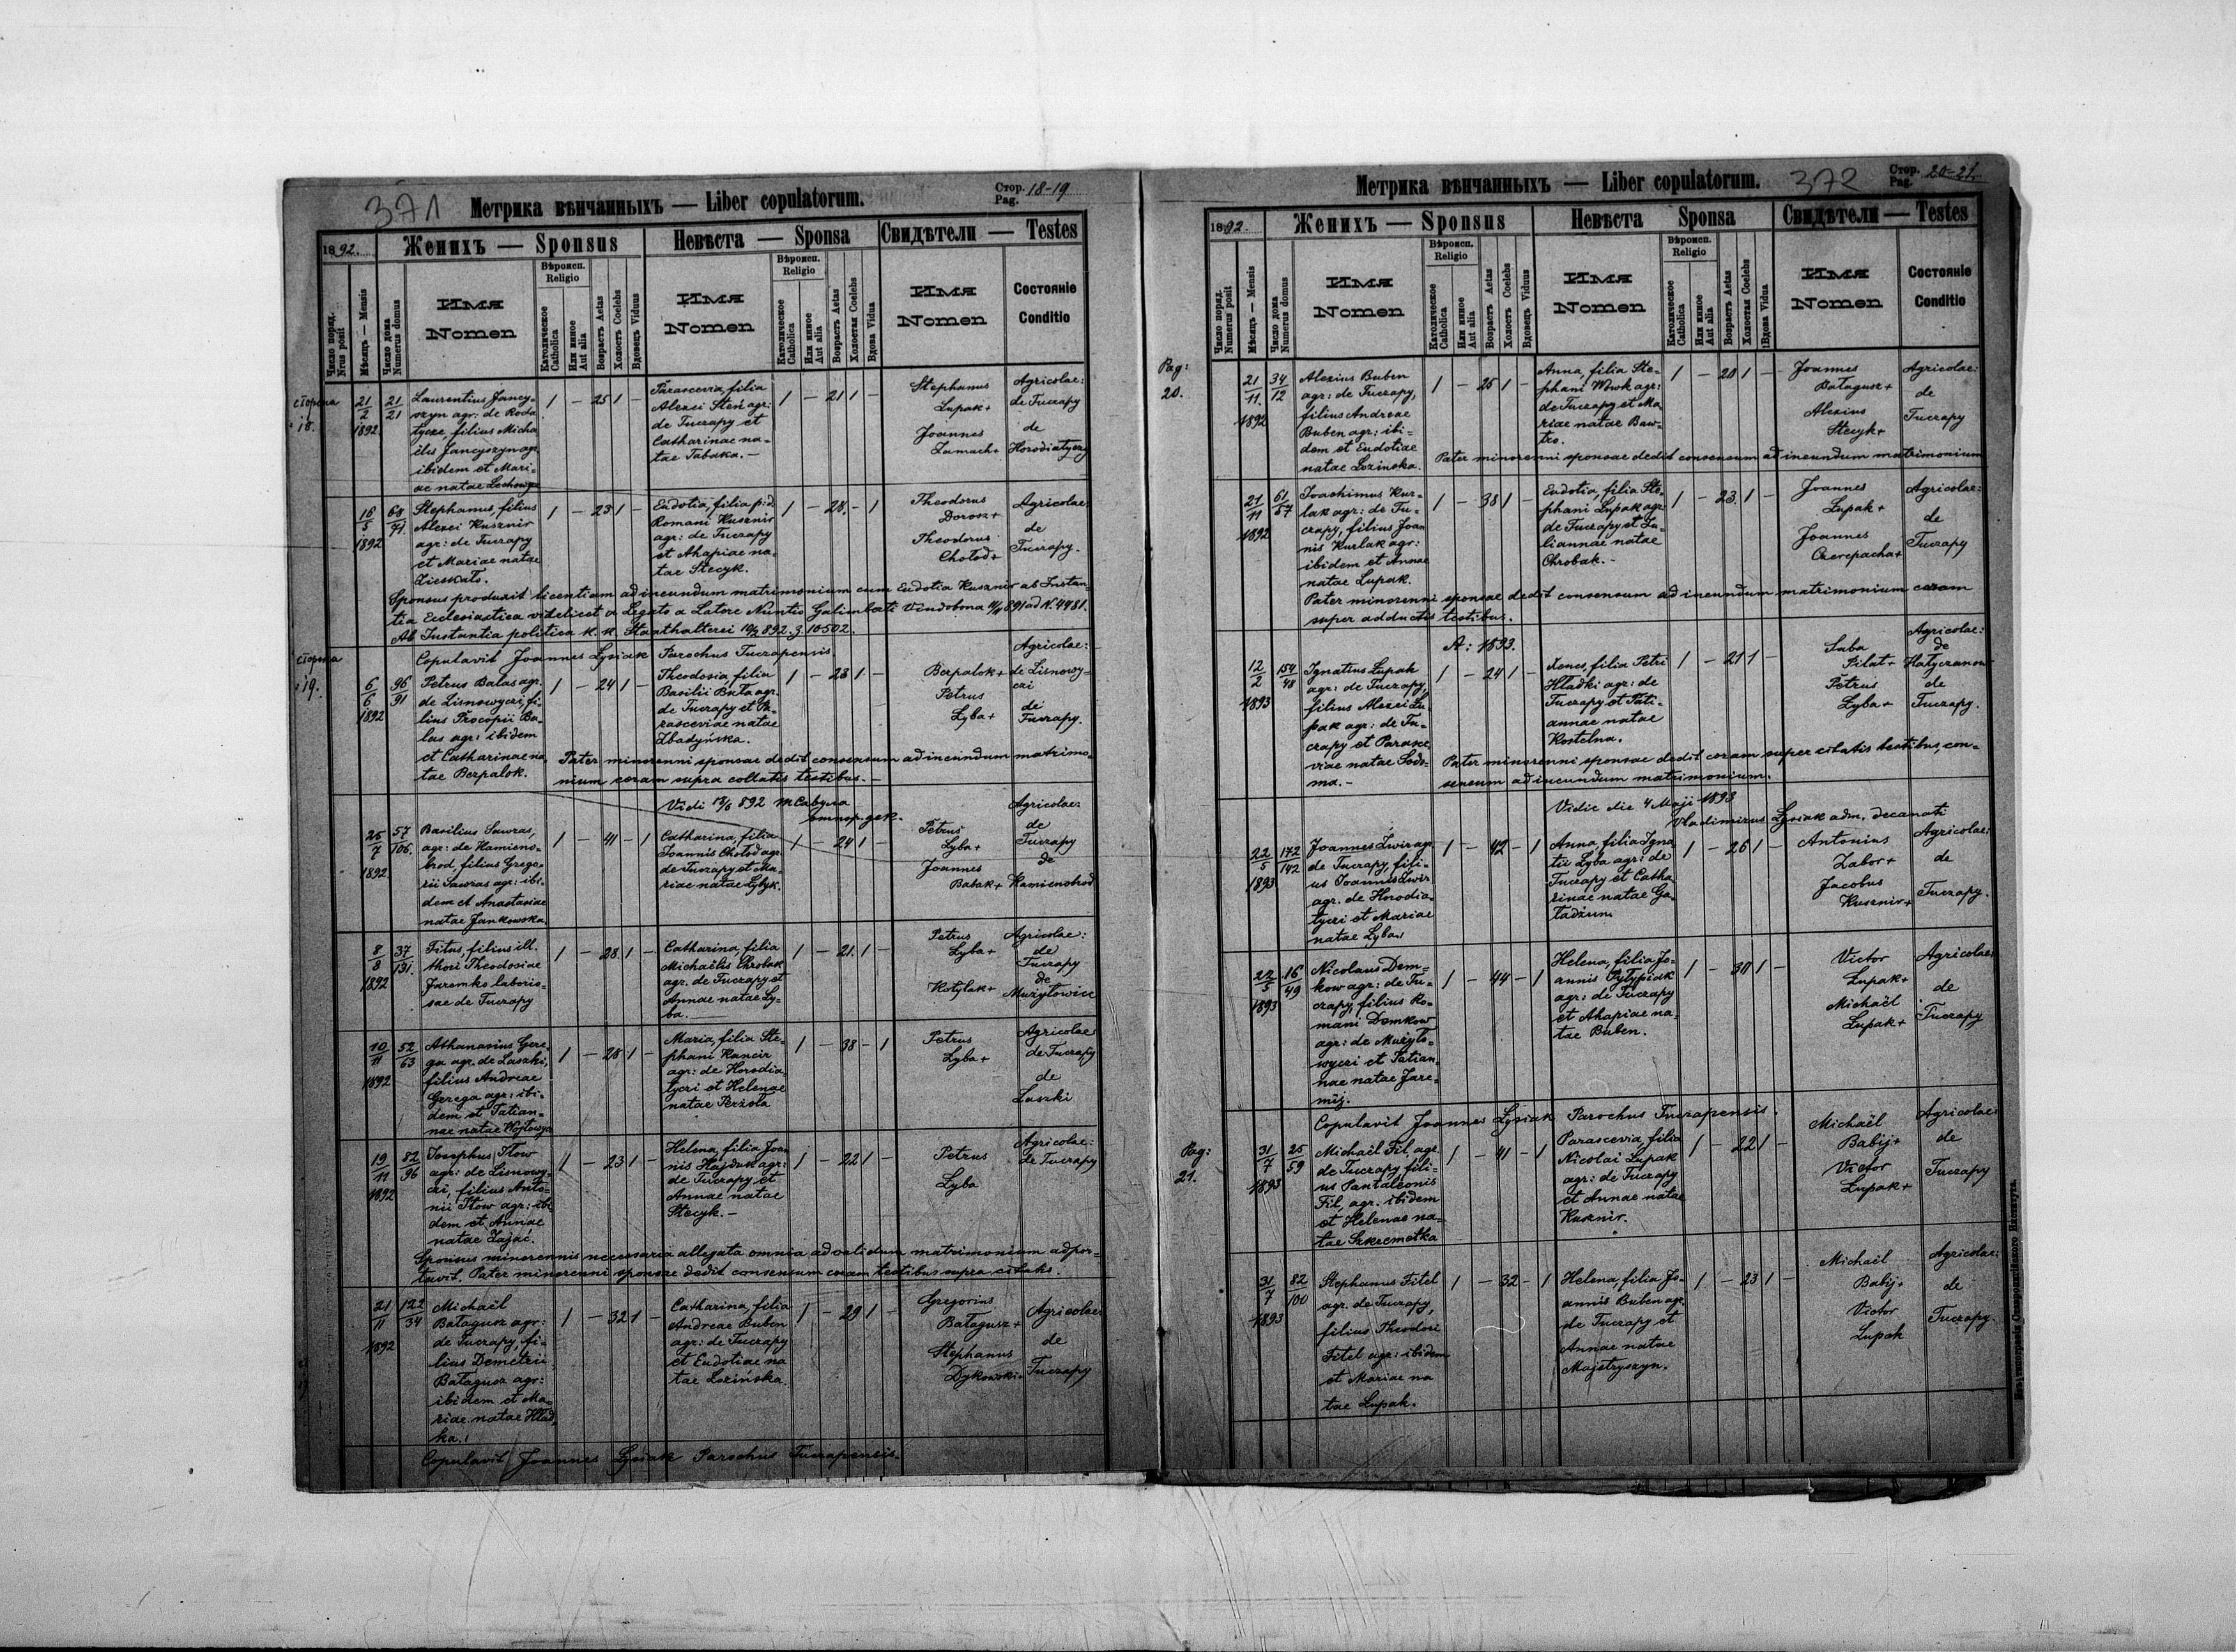 371
Метрика вѣнчанныхъ — Liber copulatorum.
Стор. Pag. 18-19
1892.
Женихъ — Sponsus
Невѣста — Sponsa
Свидѣтели — Testes
Число поряд. Nrus posit
Мѣсяцъ — Mensis
Число дома Numerus domus
Имя Nomen
Вѣроисп. Religio
Католическое Catholica
Или иное Aut alia
Возрастъ Aetas
Холостъ Coelebs
Вдовецъ Viduus
Имя Nomen
Вѣроисп. Religio
Католическое Catholica
Или иное Aut alia
Возрастъ Aetas
Холостая Coelebs
Вдова Vidua
Имя Nomen
Состояніе Conditio
сторона 18.
21/2 1892
21/21
Laurentius Jancy-
szyn agr. de Roda
tycze, filius Micha
élis Jancyszyn agr.
ibidem et Mari-
ae natae Lechowycz
1 — 25 1 —
Parascevia, filia
Alexei Steń agr:
de Tuczapy et
Catharinae na-
tae Tabaka. —
1 — 21 1 —
Stephanus
Łupak+
Joannes
Łamach+
Agricolae:
de Tuczapy
de
Horodiatyczy
16/5 1892
68/71
Stephanus, filius
Alexei Kusznir
agr: de Tuczapy
et Mariae natae
1 — 23 1 —
Eudotia, filia p: d.
Romani Kusznir
agr: de Tuczapy
et Ahapiae na-
tae Stecyk.
1 — 28. — 1
Theodorus
Dorosz+
Theodorus
Chołod+
Agricolae
de
Tuczapy.
Sponsus produxit licentiam ad ineundum matrimonium cum Eudotia Kusznir ab Instan
tia Ecclesiastica videlicet a Legato a Latere Nuntio Galimberti Vindobona 891 ad N. 4481.
Ab Instantia politica k. k. Statthalterei 892 z. 10502.
Copulavit Joannes Łysiak Parochus Tuczapensis.
сторона 19.
6/6 1892
96/91
Petrus Balas agr.
de Lisnowyczi, fi-
lius Procopii Ba-
las agr: ibidem
et Catharinae na
tae Berpalok.
1 — 24 1 —
Theodosia, filia
Basilii Bata agr.
de Tuczapy et Pa-
rasceviae natae
Zbadyńska.
1 — 23 1 —
Berpalok+
Petrus
Łyba+
Agricolae:
de Lisnowy-
czi
de
Tuczapy.
Pater minorenni sponsae dedit consensum ad ineundum matrimo-
nium coram supra collatis testibus. —
Vidi 892
25/7 1892
57/106.
Basilius Sawras,
agr: de Kamieno-
brod, filius Grego-
rii Sawras agr: ibi-
dem et Anastasiae
natae Jankowska.
1 — 41 — 1
Catharina, filia
Joannis Chołod agr.
de Tuczapy et Ma-
riae natae Łyłyk.
1 — 24 1 —
Petrus
Łyba+
Joannes
Babak+
Agricolae:
de
Tuczapy
de
Kamienobrod
8/8 1892
37/131.
Titus, filius ill.
thori Theodosiae
Jaremko laborio-
sae de Tuczapy
1 — 28. 1 —
Catharina, filia
Michaëlis Chrobak
agr. de Tuczapy et
Annae natae Ły-
ba.
1 — 21. 1 —
Petrus
Łyba+
Kotylak+
Agricolae:
de
Tuczapy
de
Mużyłowice
10/11 1892
52/63
Athanasius Gere-
ga agr. de Laszki,
filius Andreae
Gerega agr: ibi-
dem et Tatian-
nae natae Wojtowycz
1 — 28 1 —
Maria, filia Ste-
phani Kancir
agr: de Horodia-
tyczi et Helenae
natae Perżoła
1 — 38 — 1
Petrus
Łyba+
Agricolae
de Tuczapy
de
Laszki
19/11 1892
82/96
Josephus Itow
agr: de Lisnowy-
czi, filius Anto-
nii Itow agr: ibi
dem et Annae
natae Zajać.
1 — 23 1 —
Helena, filia Joan
nis Hajduk agr:
de Tuczapy et
Annae natae
Stecyk. —
1 — 22 1 —
Petrus
Łyba
Agricolae:
de Tuczapy
Sponsus minorennis necessaria allegata omnia ad validum matrimonium adpor-
tavit. Pater minorenni sponsae dedit consensum coram testibus supra citatis.
21/11 1892
122/34
Michaël
Batagusz agr:
de Tuczapy, fi-
lius Demetrii
Batagusz agr:
ibidem et Ma-
riae natae Hład-
ka.
1 — 32 1 —
Catharina, filia
Andreae Buben
agr: de Tuczapy
et Eudotiae na
tae Łozińska.
1 — 29 1 —
Gregorius
Batagusz+
Stephanus
Dykowski+
Agricolae:
de
Tuczapy
Copulavit Joannes Łysiak Parochus Tuczapensis.
Метрика вѣнчанныхъ — Liber copulatorum.
372
Стор. Pag. 20-21.
1892.
Женихъ — Sponsus
Невѣста Sponsa
Свидѣтели — Testes
Число поряд. Numerus posit
Мѣсяцъ — Mensis
Число дома Numerus domus
Имя Nomen
Вѣроисп. Religio
Католическое Catholica
Или иное Aut alia
Возрастъ Aetas
Холостъ Coelebs
Вдовецъ Viduus
Имя Nomen
Вѣроисп. Religio
Католическое Catholica
Или иное Aut alia
Возрастъ Aetas
Холостая Coelebs
Вдова Vidua
Имя Nomen
Состояніе Conditio
Pag: 20.
21/11. 1892
34/12
Alexius Buben
agr: de Tuczapy,
filius Andreae
Buben agr: ibi-
dem et Eudotiae
natae Łozinska.
1 — 25 1 —
Anna, filia Ste-
phani Wowk agr:
de Tuczapy et Ma-
riae natae Baw-
tro.
1 — 20 1 —
Joannes
Batagusz+
Alexius
Stecyk+
Agricolae:
de
Tuczapy
Pater minorenni sponsae dedit consensum ad ineundum matrimonium
21/11 1892
61/57
Joachimus Kur-
lak agr: de Tu-
czapy, filius Joan
nis Kurlak agr:
ibidem et Annae
natae Łupak.
1 — 38 1 —
Eudotia, filia Ste-
phani Łupak agr.
de Tuczapy et Ju-
liannae natae
Chrobak. —
1 — 23. 1 —
Joannes
Łupak+
Joannes
Czerepacha+
Agricolae:
de
Tuczapy
Pater minorenni sponsae dedit consensum ad ineundum matrimonium coram
super adductis testibus.
A: 1893.
12/2 1893
154/48
Ignatius Łupak
agr: de Tuczapy,
filius Alexei Łu-
pak agr: de Tu-
czapy et Parasce
viae natae Sodo-
ma. —
1 — 24 1 —
Xenes, filia Petri
Hładki agr: de
Tuczapy et Tati-
annae natae
Kostelna.
1 — 21 1 —
Saba
Piłat+
Petrus
Łyba+
Agricolae:
de
de
Tuczapy.
Pater minorenni sponsae dedit coram super citatis testibus, con-
sensum ad ineundum matrimonium.
Vidie die 4 Maji 1893
Vladimirus Łysiak adm. decanati
22/5 1893
172/142
Joannes Zwir agr.
de Tuczapy, fili-
us Joannis Zwir
agr. de Horodia-
tyczi et Mariae
natae Łyba
1 — 42 — 1
Anna, filia Igna
tii Łyba agr: de
Tuczapy et Catha
rinae natae Ga-
ładżun.
1 — 26 1 —
Antonius
Zabor+
Jacobus
Kusznir+
Agricolae:
de
Tuczapy.
22/5 1893
16/49
Nicolaus Dem-
kow agr: de Tu-
czapy, filius Ro-
mani Demkow
agr: de Mużyło-
wyczi et Tatian-
nae natae Jare-
mij.
1 — 44 — 1
Helena, filia Jo-
annis Pyłypiak
agr: de Tuczapy
et Ahapiae na-
tae Buben.
1 — 30 1 —
Victor
Łupak+
Michaël
Łupak+
Agricolae:
de
Tuczapy
Copulavit Joannes Łysiak Parochus Tuczapensis.
Pag: 21.
31/7 1893
25/59
Michaël Fil, agr.
de Tuczapy fili-
us Pantaleonis
Fil, agr. ibidem
et Helenae na-
tae Szkremetka
1 — 41 — 1
Parascevia, filia
Nicolai Łupak
agr: de Tuczapy
et Annae natae
Kusznir.
1 — 22 1 —
Michaël
Babij+
Victor
Łupak+
Agricolae:
de
Tuczapy
31/7 1893
82/100
Stephanus Fitel
agr. de Tuczapy,
filius Theodori
Fitel agr: ibidem
et Mariae na
tae Łupak.
1 — 32 — 1
Helena, filia Jo-
annis Buben agr.
de Tuczapy et
Annae natae
Majstryszyn.
1 — 23 1 —
Michaël
Babij+
Victor
Łupak
Agricolae:
de
Tuczapy.